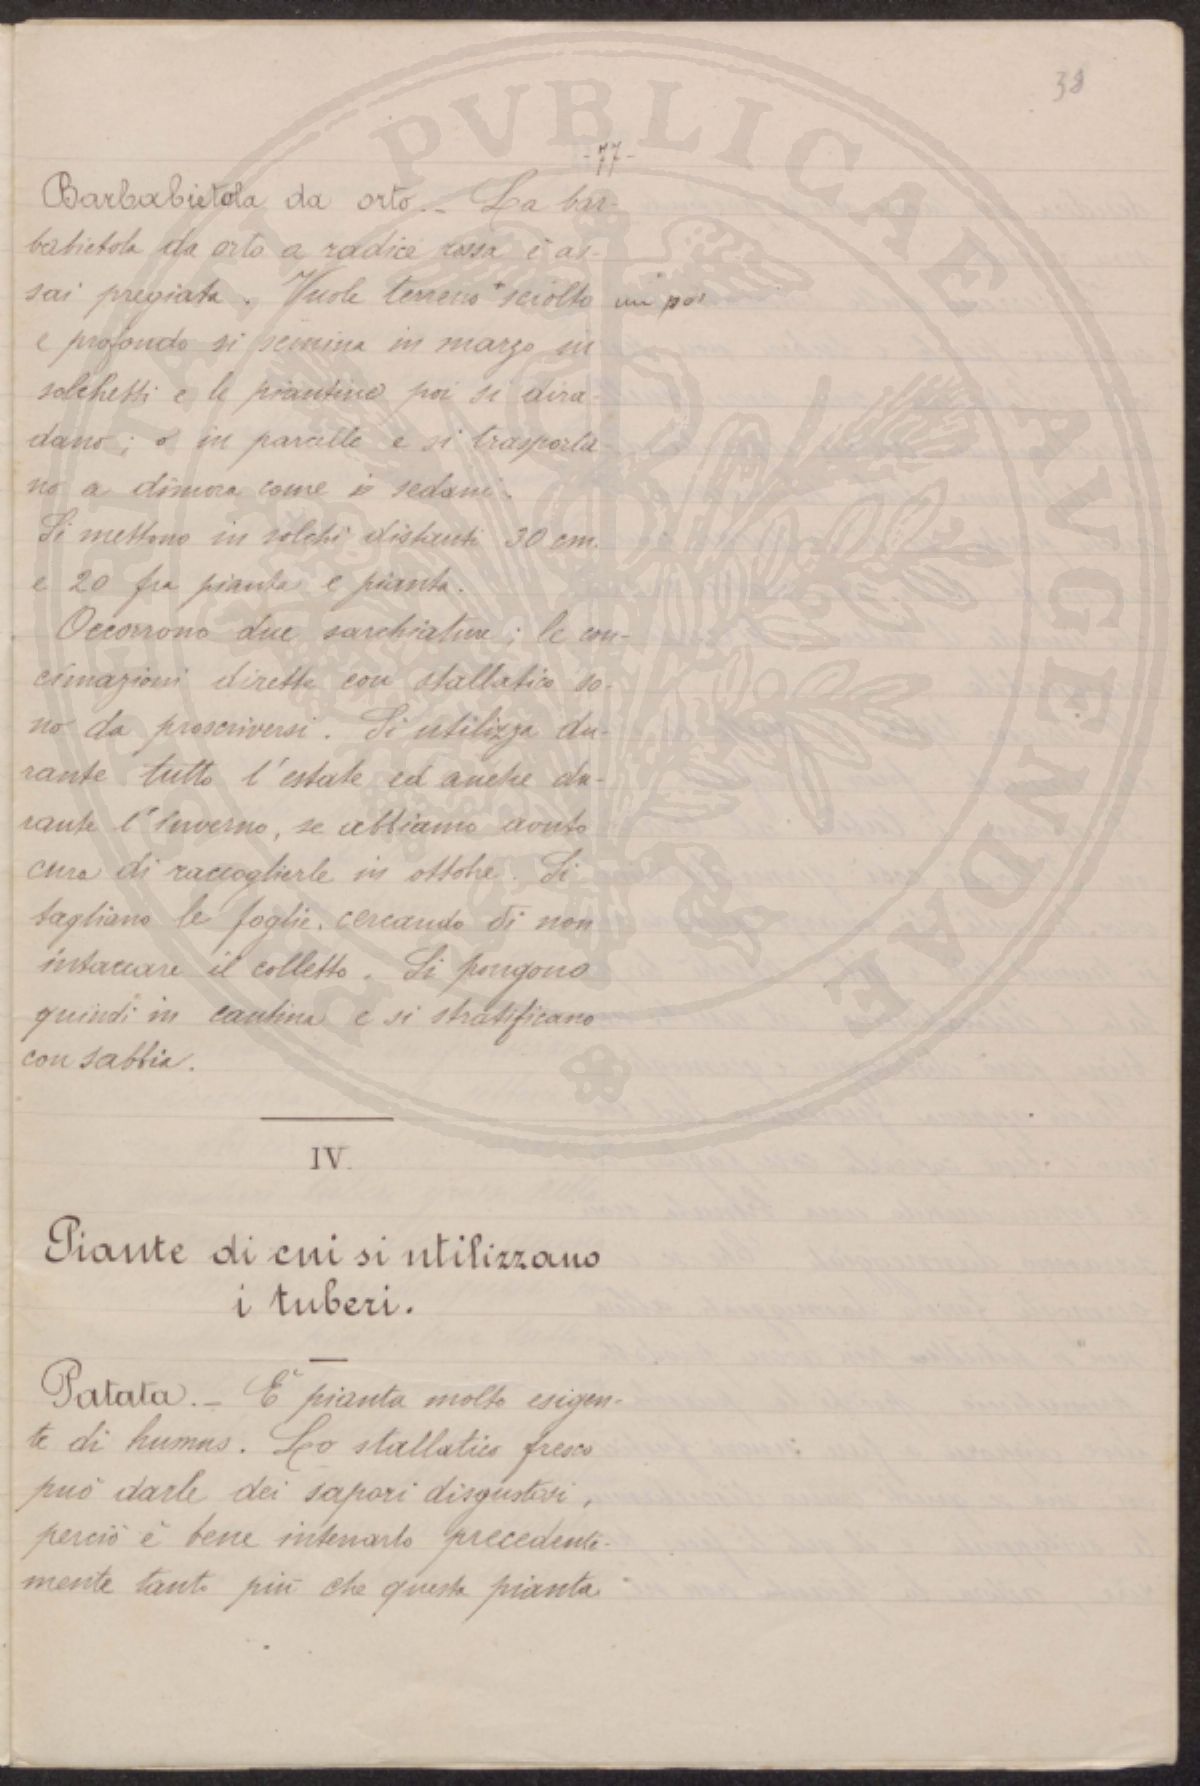 38
-77-
Barbabietola da orto. - La bar-
babietola da orto a radice rossa è as-
sai pregiata. Vuole terreno * sciolto un po'
e profondo si semina in marzo in
solchetti e le piantine poi si dira-
dano; o in parcelle e si trasporta-
no a dimora come i sedani.
Si mettono in solchi distanti 30 cm.
e 20 fra pianta e pianta.
Occorrono due sarchiature; le con-
cimazioni dirette con stallatico so-
no da proscriversi. Si utilizza du-
rante tutto l'estate ed anche du-
rante l'inverno, se abbiamo avuto
cura di raccoglierle in ottobre. Si
tagliano le foglie, cercando di non
intaccare il colletto. Si pongono
quindi in cantina e si stratificano
con sabbia.
IV.
Piante di cui si utilizzano
i tuberi.
Patata. - È pianta molto esigen-
te di humus. Lo stallatico fresco
può darle dei sapori disgustosi,
perciò è bene interrarlo precedente-
mente tanto più che questa pianta
PVBLICAE AVGENDAE